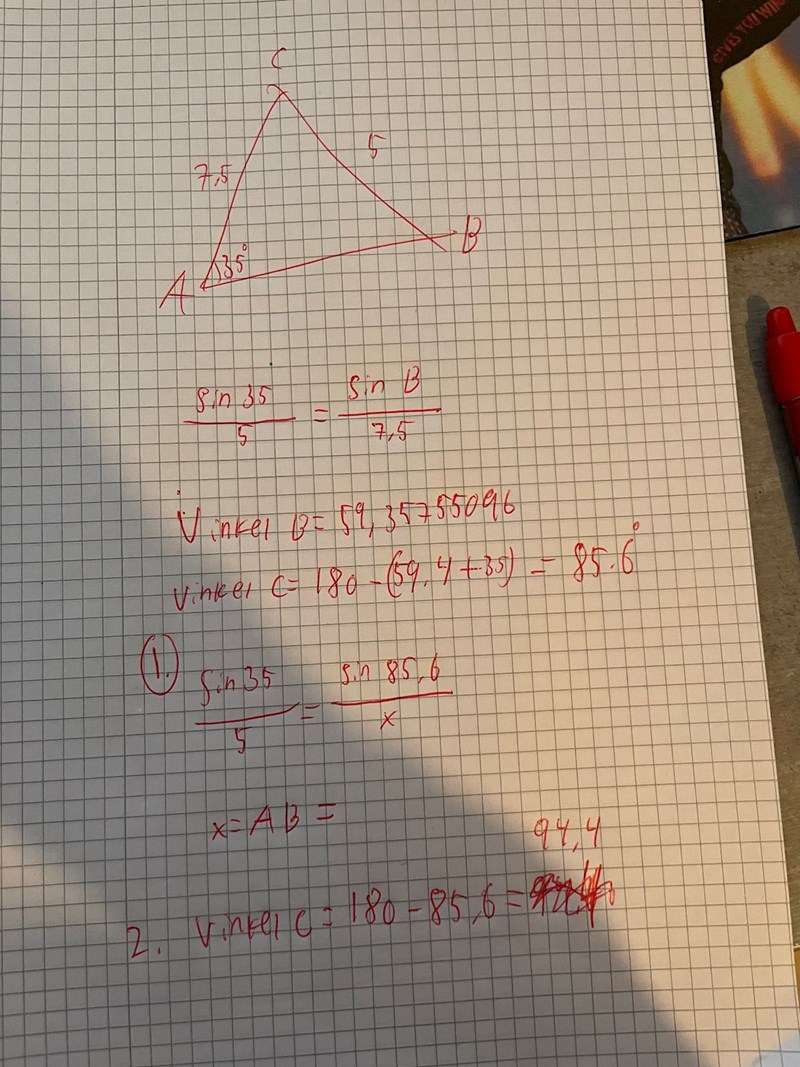 GIVES YOU WINGS
C
7,5
5
35°
A
B
sin 35 / 5 = sin B / 7,5
Vinkel B = 59,35755096
Vinkel C = 180 - (59.4 + 35) = 85.6°
1.
sin 35 / 5 = sin 85,6 / x
x = AB =
94,4
2. Vinkel C = 180 - 85,6 =